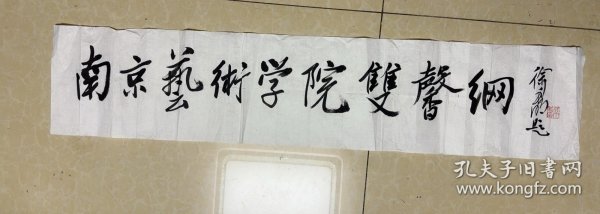 南京藝術学院雙馨網
徐利明题
孔夫子旧书网
www.kongfz.com